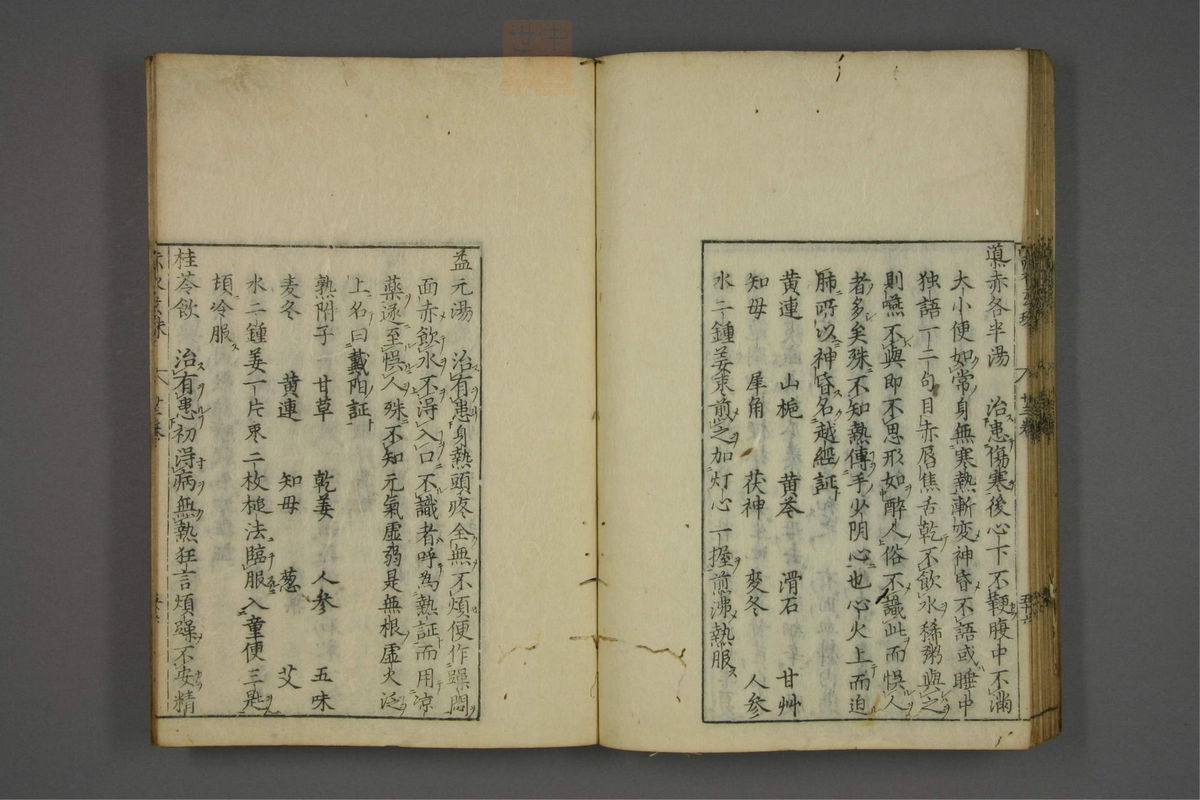 導赤各半湯　治患傷寒後心下不鞕腹中不滿
大小便如常身無寒熱漸變神昏不語或睡中
独語一二句目赤唇焦舌乾不飲水稀粥與之
則嚥不與即不思形如醉人俗不識此而悞人
者多矣殊不知熱傳手少阴心也心火上而迫
肺所以神昏名越經証
黄連　山梔　黄芩　滑石　甘艸
知母　犀角　茯神　麥冬　人參
水二鍾姜枣煎之加灯心一握煎沸熱服
益元湯　治有患身熱頭疼全無不煩便作躁悶
面赤飲水不淂入口不識者呼為熱証而用凉
藥遂至悞人殊不知元氣虚弱是無根虚火泛
上名曰戴阳証
熟附子　甘草　乾姜　人參　五味
麦冬　黄連　知母　葱　艾
水二鍾姜一片枣二枚槌法臨服入童便三匙
頃冷服
桂苓飲　治有患初淂病無熱狂言煩躁不安精